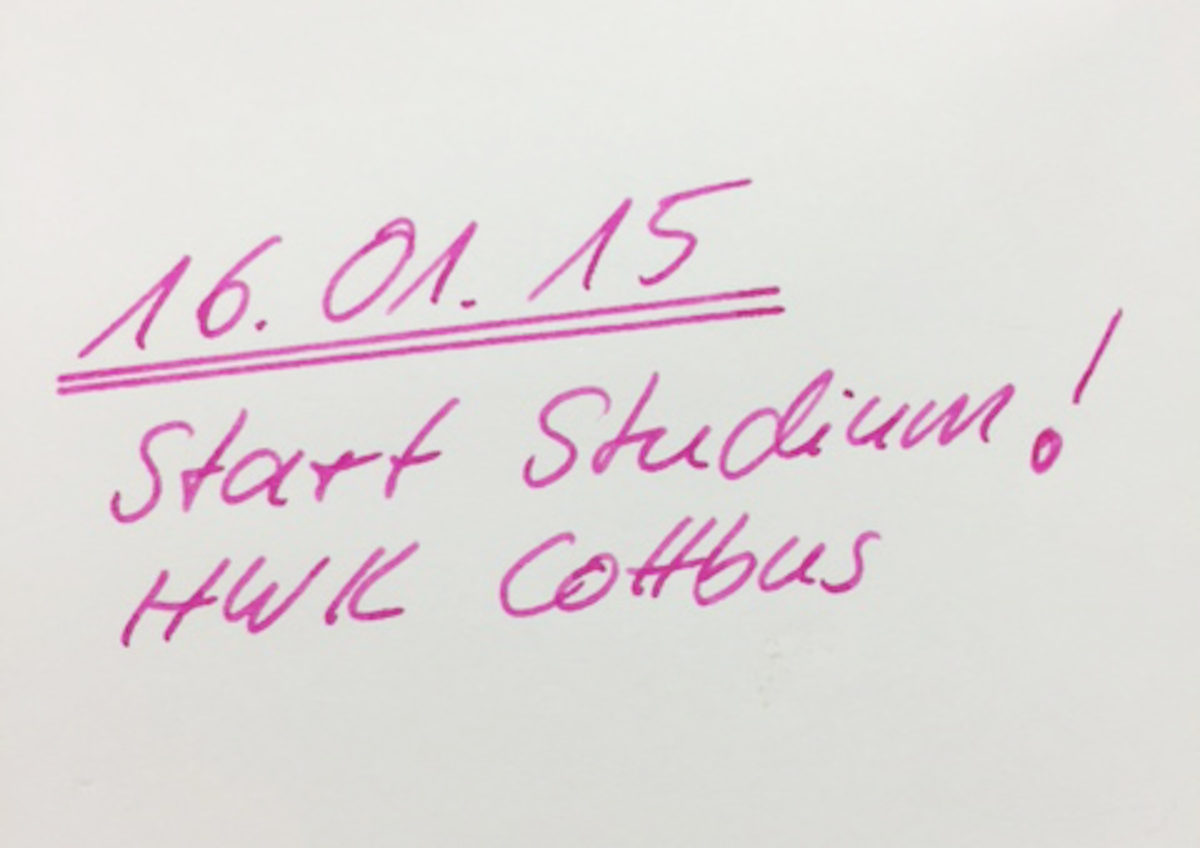 16.01.15
Start Studium!
HWK Cottbus